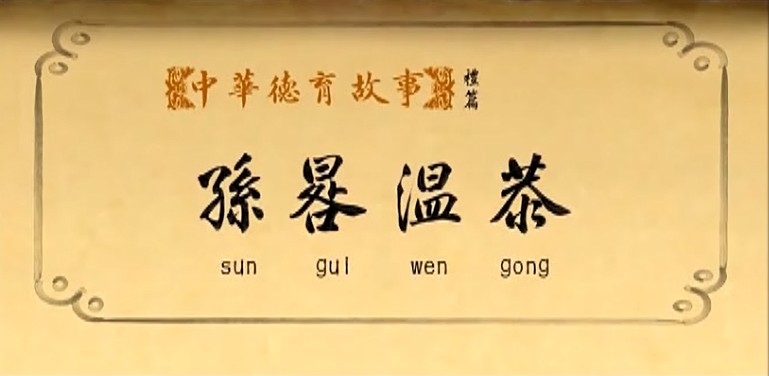 中華德育故事 禮篇
孫晷温恭
sun gui wen gong